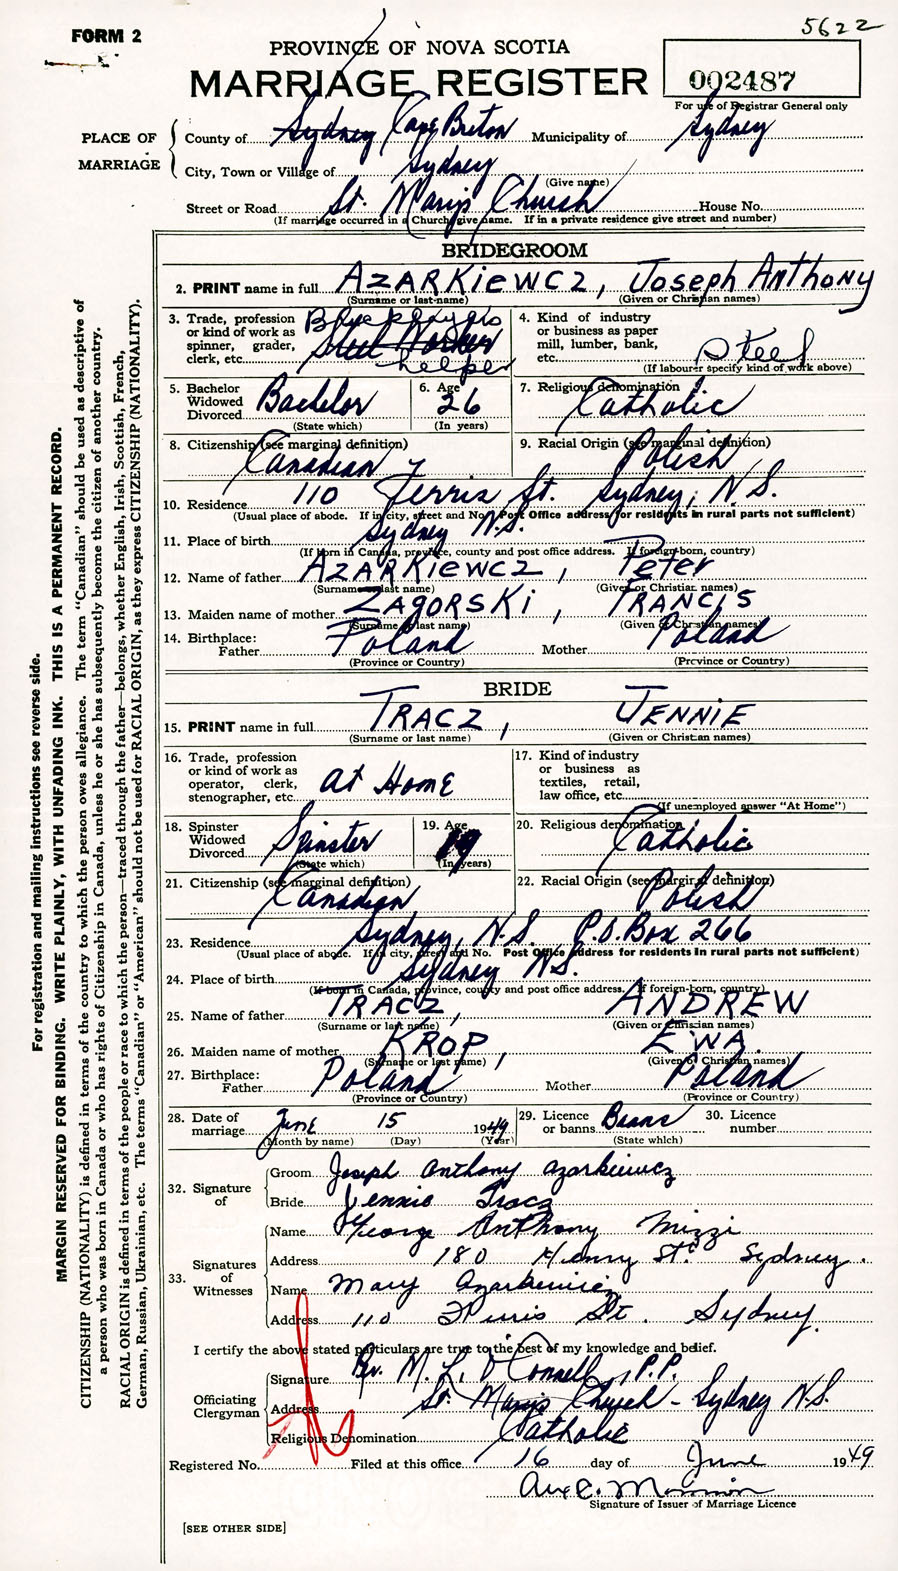 FORM 2
5622
PROVINCE OF NOVA SCOTIA
MARRIAGE REGISTER
002487
For use of Registrar General only
PLACE OF MARRIAGE
County of Sydney Cape Breton Municipality of Sydney
City, Town or Village of Sydney
(Give name)
Street or Road St. Mary's Church House No.
(If marriage occurred in a Church give name. If in a private residence give street and number)
BRIDEGROOM
2. PRINT name in full AZARKIEWCZ, JOSEPH ANTHONY
(Surname or last-name) (Given or Christian names)
3. Trade, profession or kind of work as spinner, grader, clerk, etc. Steel Worker helper
4. Kind of industry or business as paper mill, lumber, bank, etc. Steel
(If labourer specify kind of work above)
5. Bachelor Widowed Divorced Bachelor
(State which)
6. Age 26
(In years)
7. Religious denomination Catholic
8. Citizenship (see marginal definition) Canadian
9. Racial Origin (see marginal definition) Polish
10. Residence 110 Ferris St. Sydney, N.S.
(Usual place of abode. If in city, street and No. Post Office address for residents in rural parts not sufficient)
11. Place of birth Sydney N.S.
(If born in Canada, province, county and post office address. If foreign-born, country)
12. Name of father AZARKIEWCZ, Peter
(Surname or last name) (Given or Christian names)
13. Maiden name of mother ZAGORSKI, FRANCIS
(Surname or last name) (Given or Christian names)
14. Birthplace: Father Poland Mother Poland
(Province or Country) (Province or Country)
BRIDE
15. PRINT name in full TRACZ, JENNIE
(Surname or last name) (Given or Christian names)
16. Trade, profession or kind of work as operator, clerk, stenographer, etc. At Home
17. Kind of industry or business as textiles, retail, law office, etc.
(If unemployed answer "At Home")
18. Spinster Widowed Divorced Spinster
(State which)
19. Age 19
(In years)
20. Religious denomination Catholic
21. Citizenship (see marginal definition) Canadian
22. Racial Origin (see marginal definition) Polish
23. Residence Sydney, N.S. P.O. Box 266
(Usual place of abode. If in city, street and No. Post Office address for residents in rural parts not sufficient)
24. Place of birth Sydney N.S.
(If born in Canada, province, county and post office address. If foreign-born, country)
25. Name of father TRACZ, ANDREW
(Surname or last name) (Given or Christian names)
26. Maiden name of mother KROP, EWA
(Surname or last name) (Given or Christian names)
27. Birthplace: Father Poland Mother Poland
(Province or Country) (Province or Country)
28. Date of marriage June 15 1949
(Month by name) (Day) (Year)
29. Licence or banns Banns
(State which)
30. Licence number
32. Signature of
Groom Joseph Anthony Azarkiewicz
Bride Jennie Tracz
33. Signatures of Witnesses
Name George Anthony Mizzi
Address 180 Henry St. Sydney.
Name Mary Azarkewicz
Address 110 Ferris St. Sydney.
I certify the above stated particulars are true to the best of my knowledge and belief.
Officiating Clergyman
Signature Rev. M. L. O'Connell, P.P.
Address St. Mary's Church - Sydney N.S.
Religious Denomination Catholic
Registered No. Filed at this office 16 day of June 1949
Signature of Issuer of Marriage Licence
[SEE OTHER SIDE]
For registration and mailing instructions see reverse side.
MARGIN RESERVED FOR BINDING. WRITE PLAINLY, WITH UNFADING INK. THIS IS A PERMANENT RECORD.
CITIZENSHIP (NATIONALITY) is defined in terms of the country to which the person owes allegiance. The term "Canadian" should be used as descriptive of
a person who was born in Canada or who has rights of Citizenship in Canada, unless he or she has subsequently become the citizen of another country.
RACIAL ORIGIN is defined in terms of the people or race to which the person—traced through the father—belongs, whether English, Irish, Scottish, French,
German, Russian, Ukrainian, etc. The terms "Canadian" or "American" should not be used for RACIAL ORIGIN, as they express CITIZENSHIP (NATIONALITY).